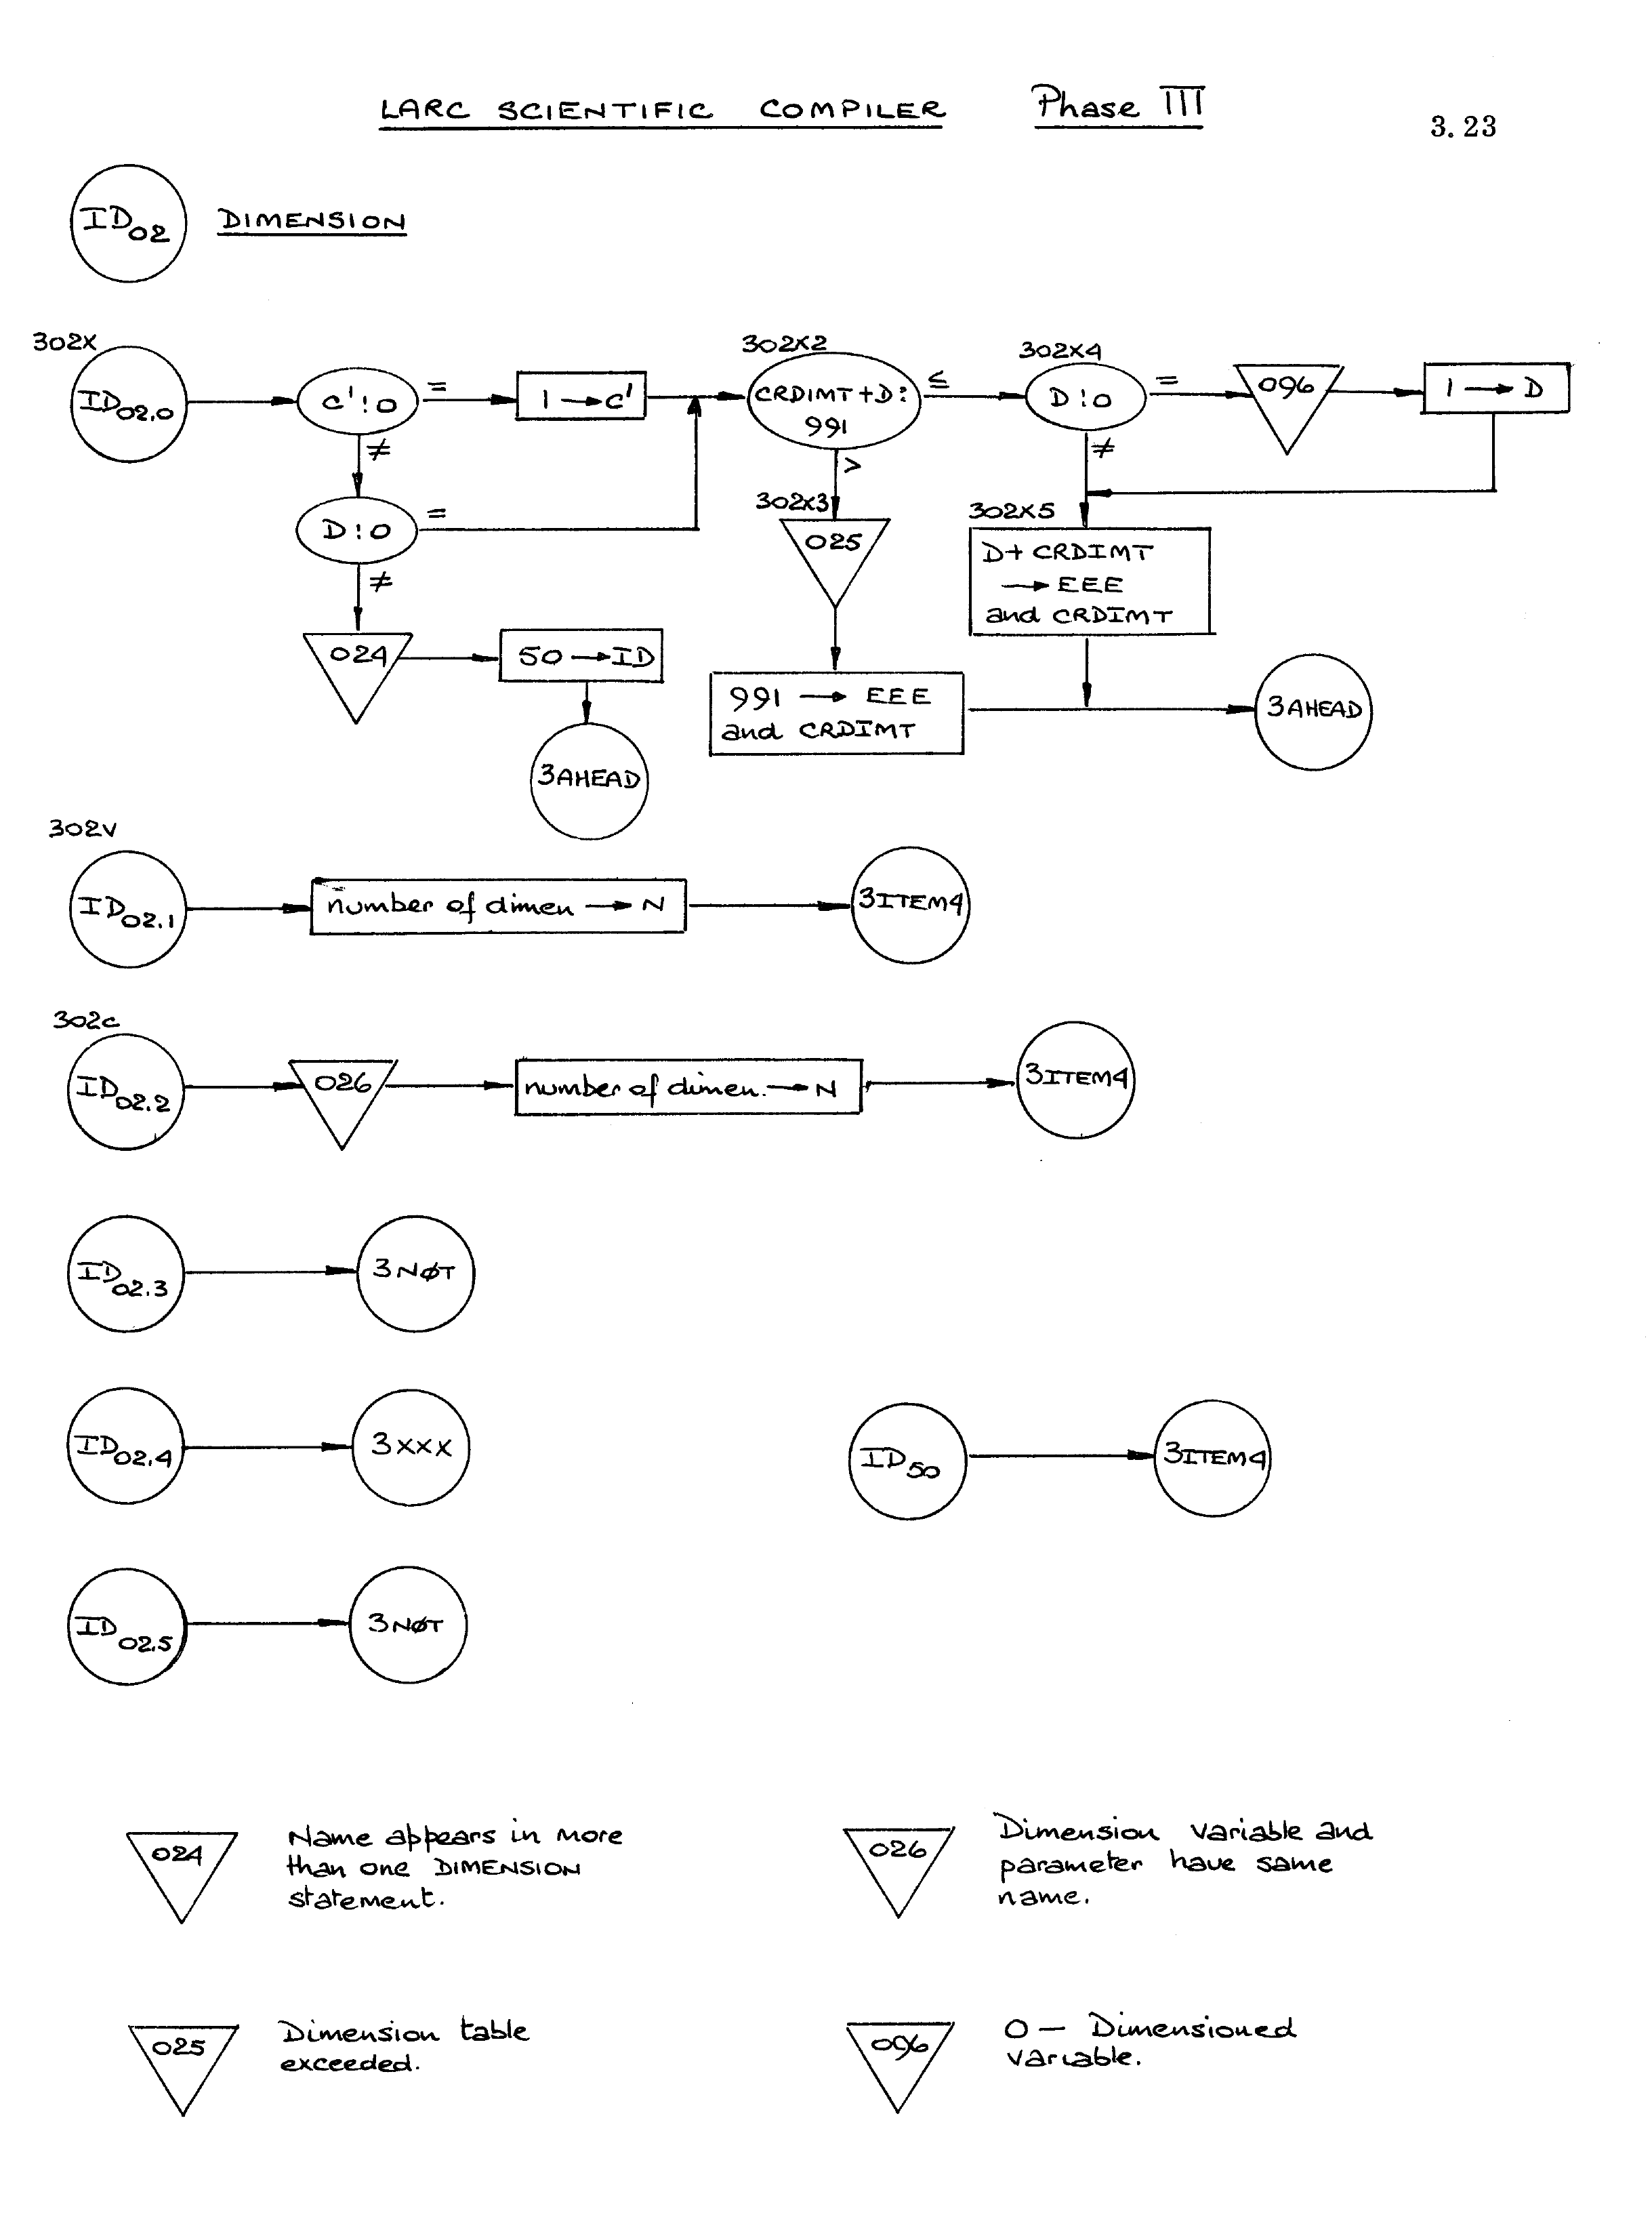 LARC SCIENTIFIC COMPILER Phase III
3.23
ID02 DIMENSION
302X
ID02.0
C':0
=
1 → C'
302X2
CRDIMT+D:
991
≤
302X4
D:0
=
096
1 → D
≠
D:0
=
>
302X3
025
≠
302X5
D+ CRDIMT
→ EEE
and CRDIMT
≠
024
50 → ID
3AHEAD
991 → EEE
and CRDIMT
3AHEAD
302V
ID02.1
number of dimen → N
3ITEM4
302C
ID02.2
026
number of dimen. → N
3ITEM4
ID02.3
3NØT
ID02.4
3XXX
ID50
3ITEM4
ID02.5
3NØT
024
Name appears in more
than one DIMENSION
statement.
026
Dimension variable and
parameter have same
name.
025
Dimension table
exceeded.
096
0 — Dimensioned
variable.